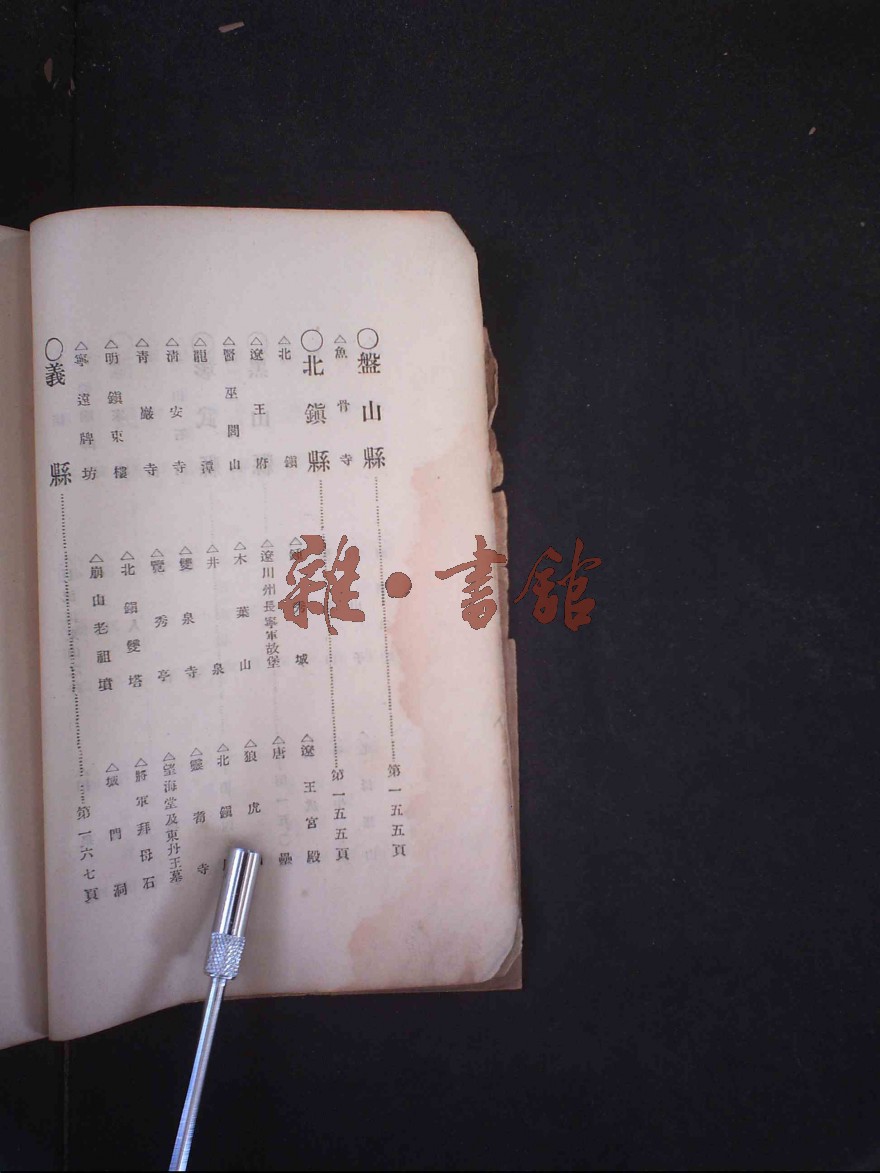 ○盤山縣……第一五五頁
△魚骨寺
○北鎭縣……第一五五頁
△北鎭 城 △遼王宮殿
△遼王府 △遼川州長寧軍故堡 △唐壘
△醫巫閭山 △木葉山 △狼虎
△龍潭 △井泉 △北鎭
△淸安寺 △雙泉寺 △靈 寺
△靑巖寺 △覽秀亭 △望海堂及東丹王墓
△明鎭東樓 △北鎭人雙塔 △將軍拜母石
△寧遠牌坊 △崩山老祖墳 △坂門洞
○義縣……第一六七頁
雜·書館